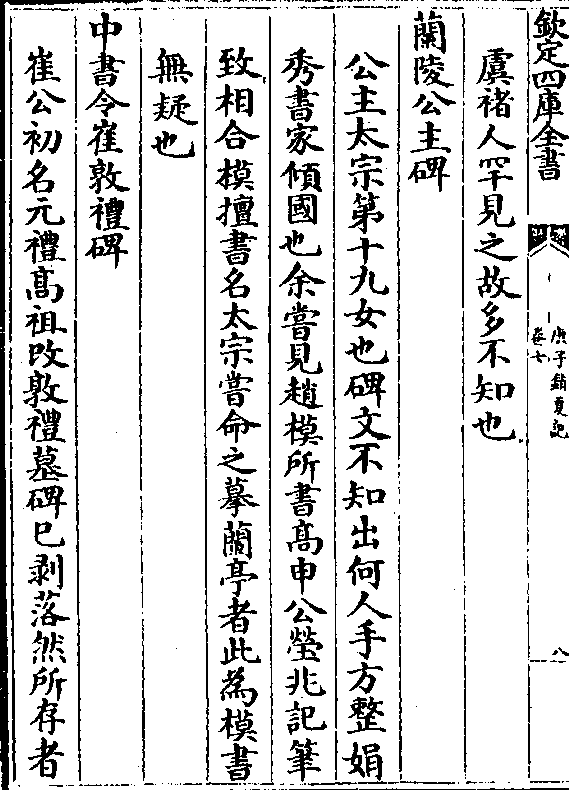 欽定四庫全書
庚子銷夏記
卷七
八
虞褚人罕見之故多不知也
蘭陵公主碑
公主太宗第十九女也碑文不知出何人手方整娟
秀書家傾國也余嘗見趙模所書髙申公塋兆記筆
致相合模擅書名太宗嘗命之摹蘭亭者此為模書
無疑也
中書令崔敦禮碑
崔公初名元禮髙祖改敦禮墓碑已剥落然所存者